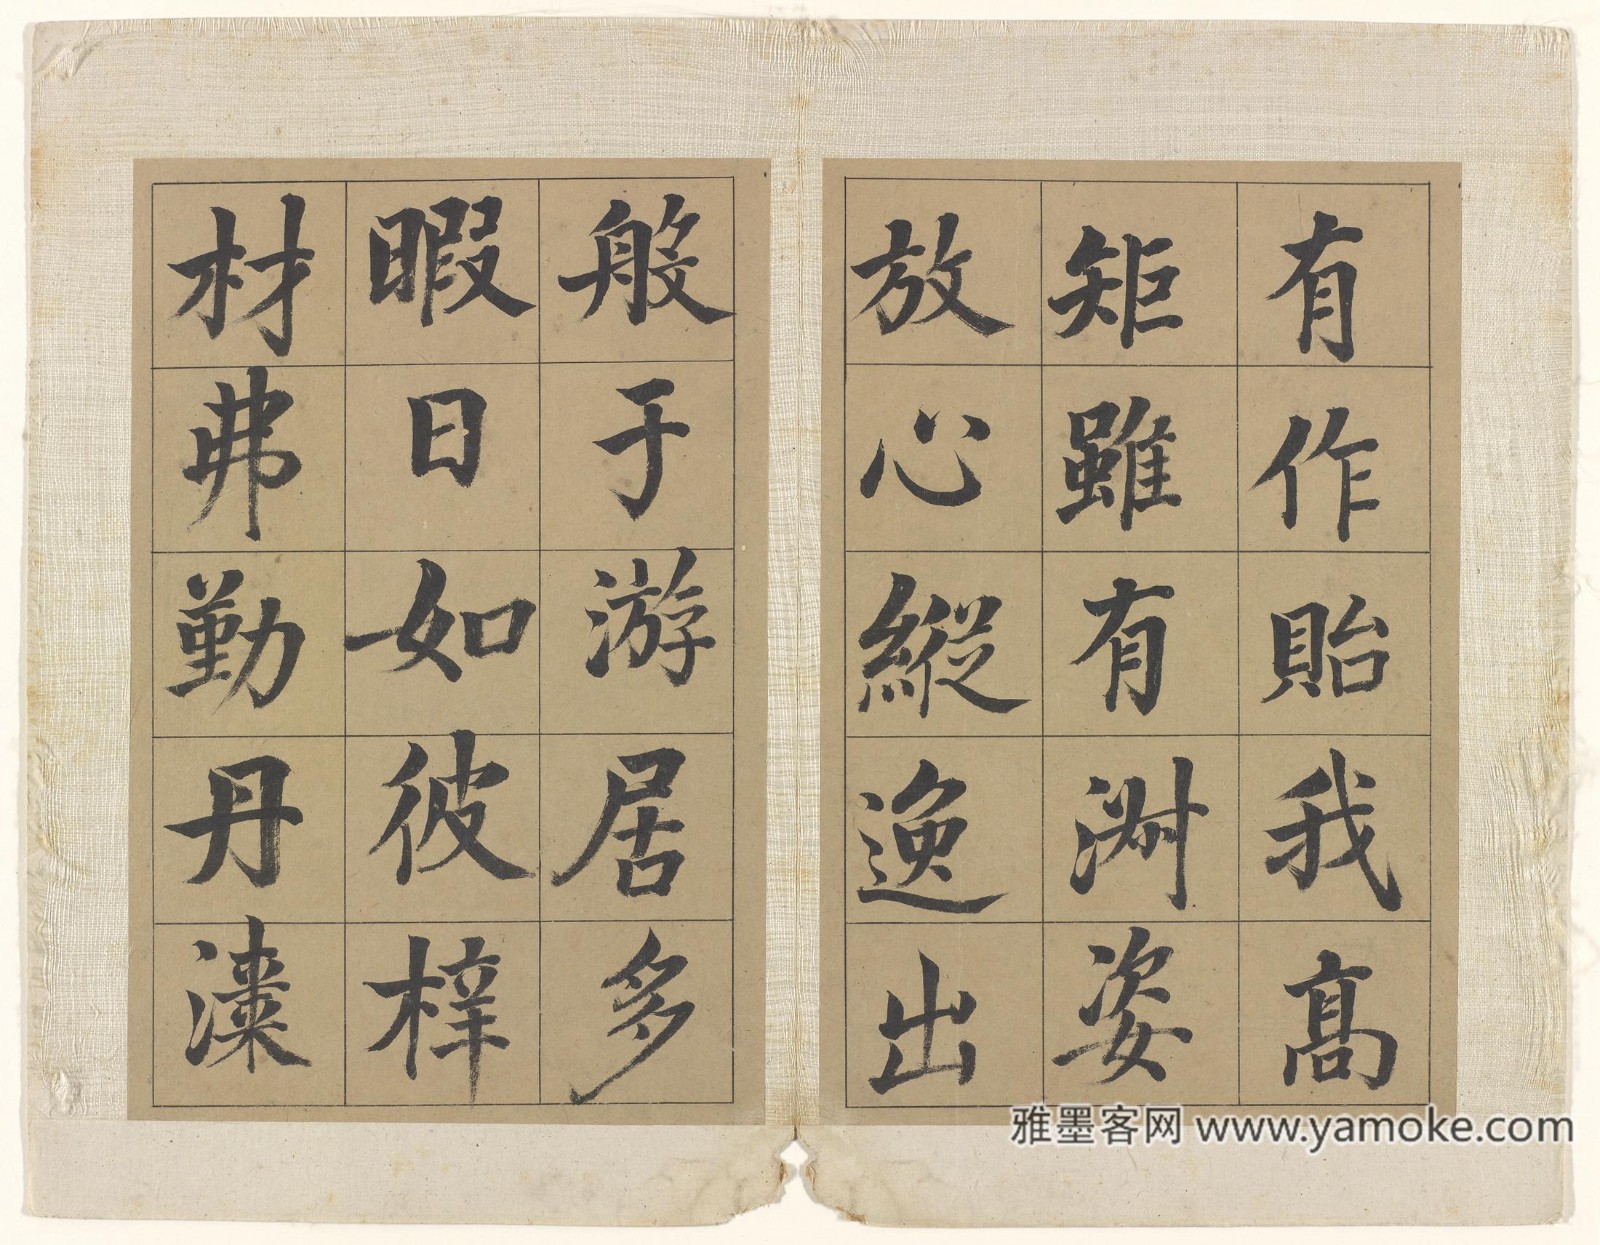 有作貽我高
矩雖有淵姿
放心縱逸出
般于游居多
暇日如彼梓
材弗勤丹漆
雅墨客网 www.yamoke.com